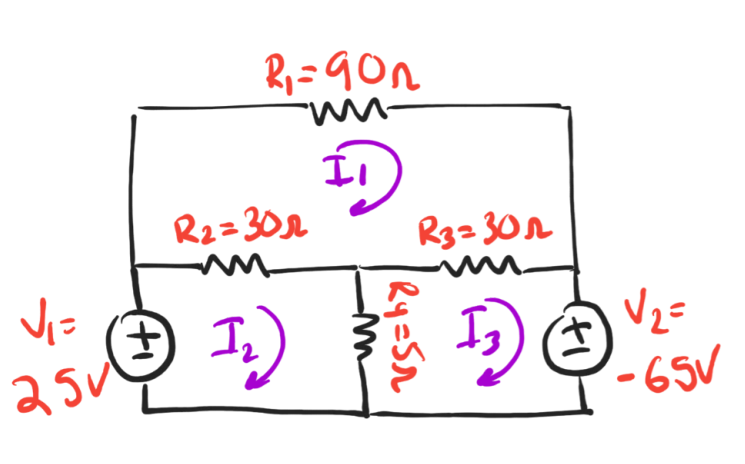 R₁=90Ω
I1
R₂=30Ω
R₃=30Ω
V₁=
25V
+
-
I₂
R4=5Ω
I₃
+
-
V₂=
-65V